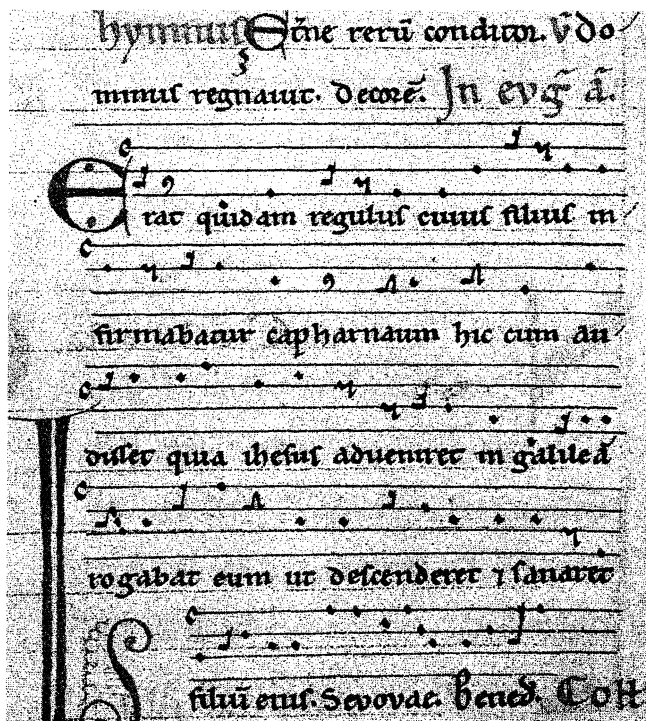 hymnus Etne rerū conditor. V̄ Do
minus regnauit. Decorē. In evḡ ā.
Erat quidam regulus cuius filius in
firmabatur capharnaum hic cum au
disset quia ihesus adueniret in galileā
rogabat eum ut descenderet ⁊ sanaret
filiū eius. Sevovae. Bened. Coll